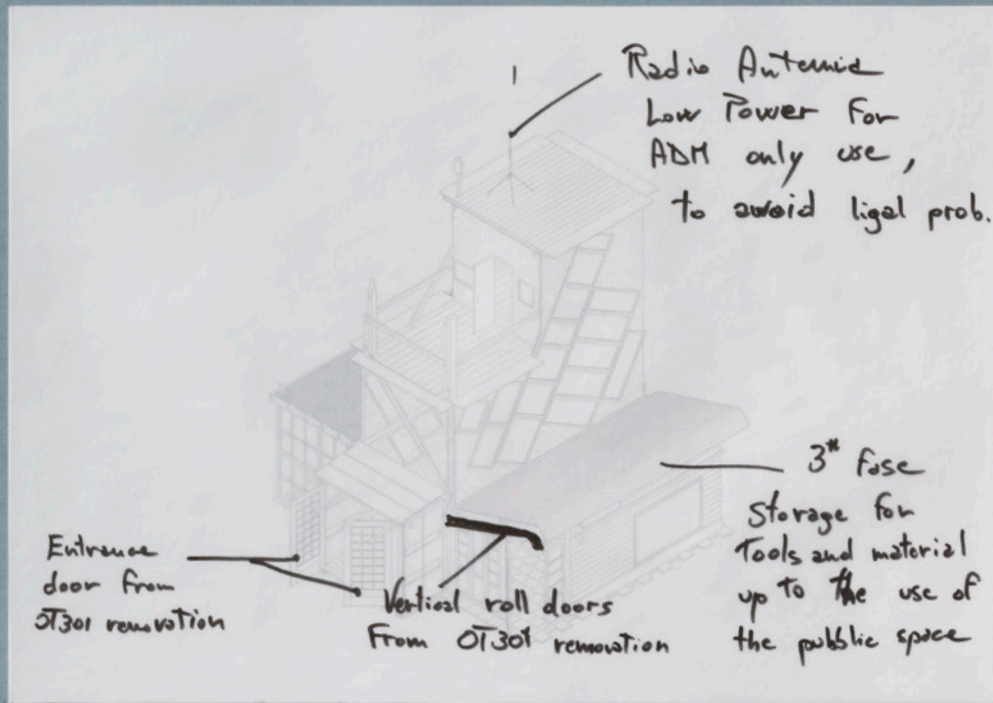 Radio Antennie
Low Power For
ADM only use,
to avoid ligal prob.
3# fase
Storage for
Tools and material
up to the use of
the pubblic space
Entrance
door from
OT301 renovation
Vertical roll doors
From OT301 renovation